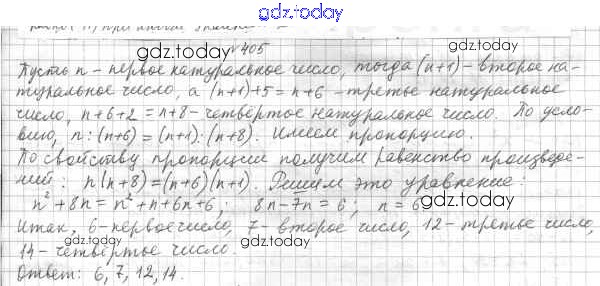 gdz.today
gdz.today
№405
Пусть n - первое натуральное число, тогда (n+1) - второе на-
туральное число, а (n+1)+5 = n+6 - третье натуральное
число, n+6+2 = n+8 - четвёртое натуральное число. По усло-
вию, n:(n+6) = (n+1):(n+8). Имеем пропорцию.
gdz.today gdz.today
По свойству пропорции получим равенство произведе-
ний: n(n+8)=(n+6)(n+1). Решим это уравнение:
n²+8n = n²+n+6n+6; 8n-7n = 6; n = 6
gdz.today
Итак, 6-первое число, 7-второе число, 12-третье число,
14-четвёртое число.
gdz.today gdz.today
Ответ: 6, 7, 12, 14.